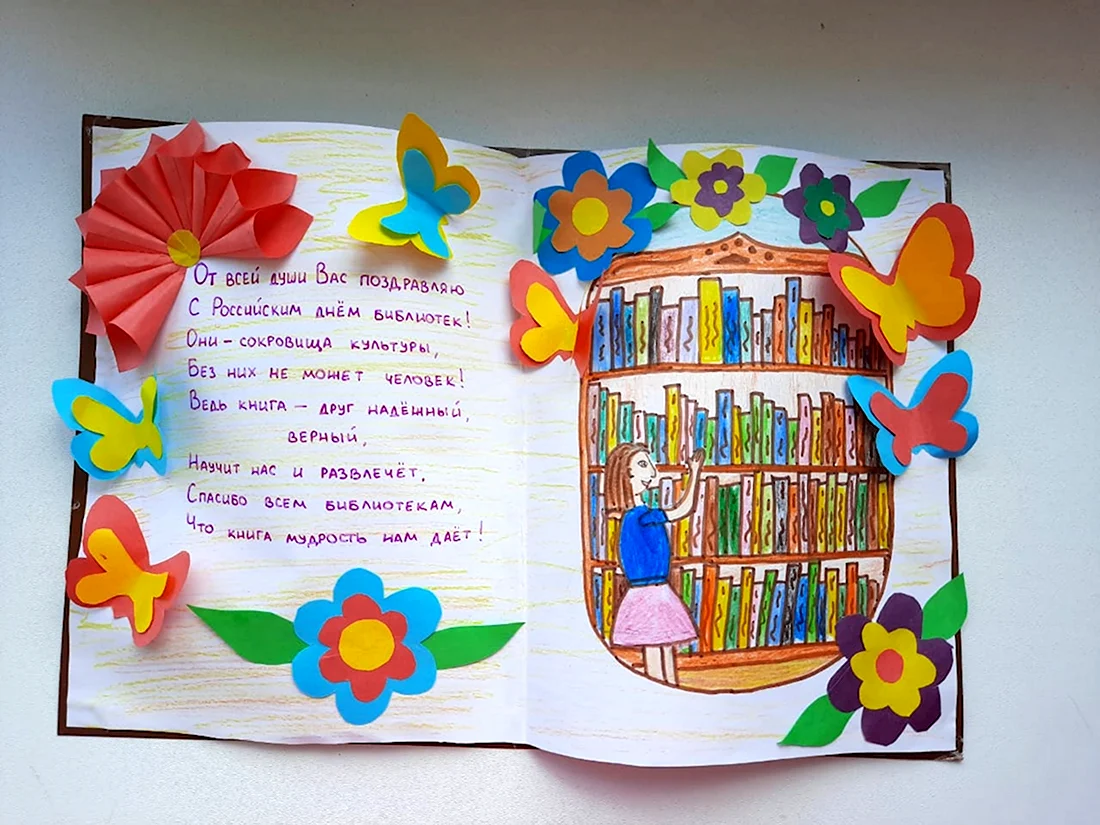 От всей души Вас поздравляю
С Российским днём библиотек!
Они - сокровища культуры,
Без них не может человек!
Ведь книга - друг надёжный,
верный,
Научит нас и развлечёт,
Спасибо всем библиотекам,
Что книга мудрость нам даёт!